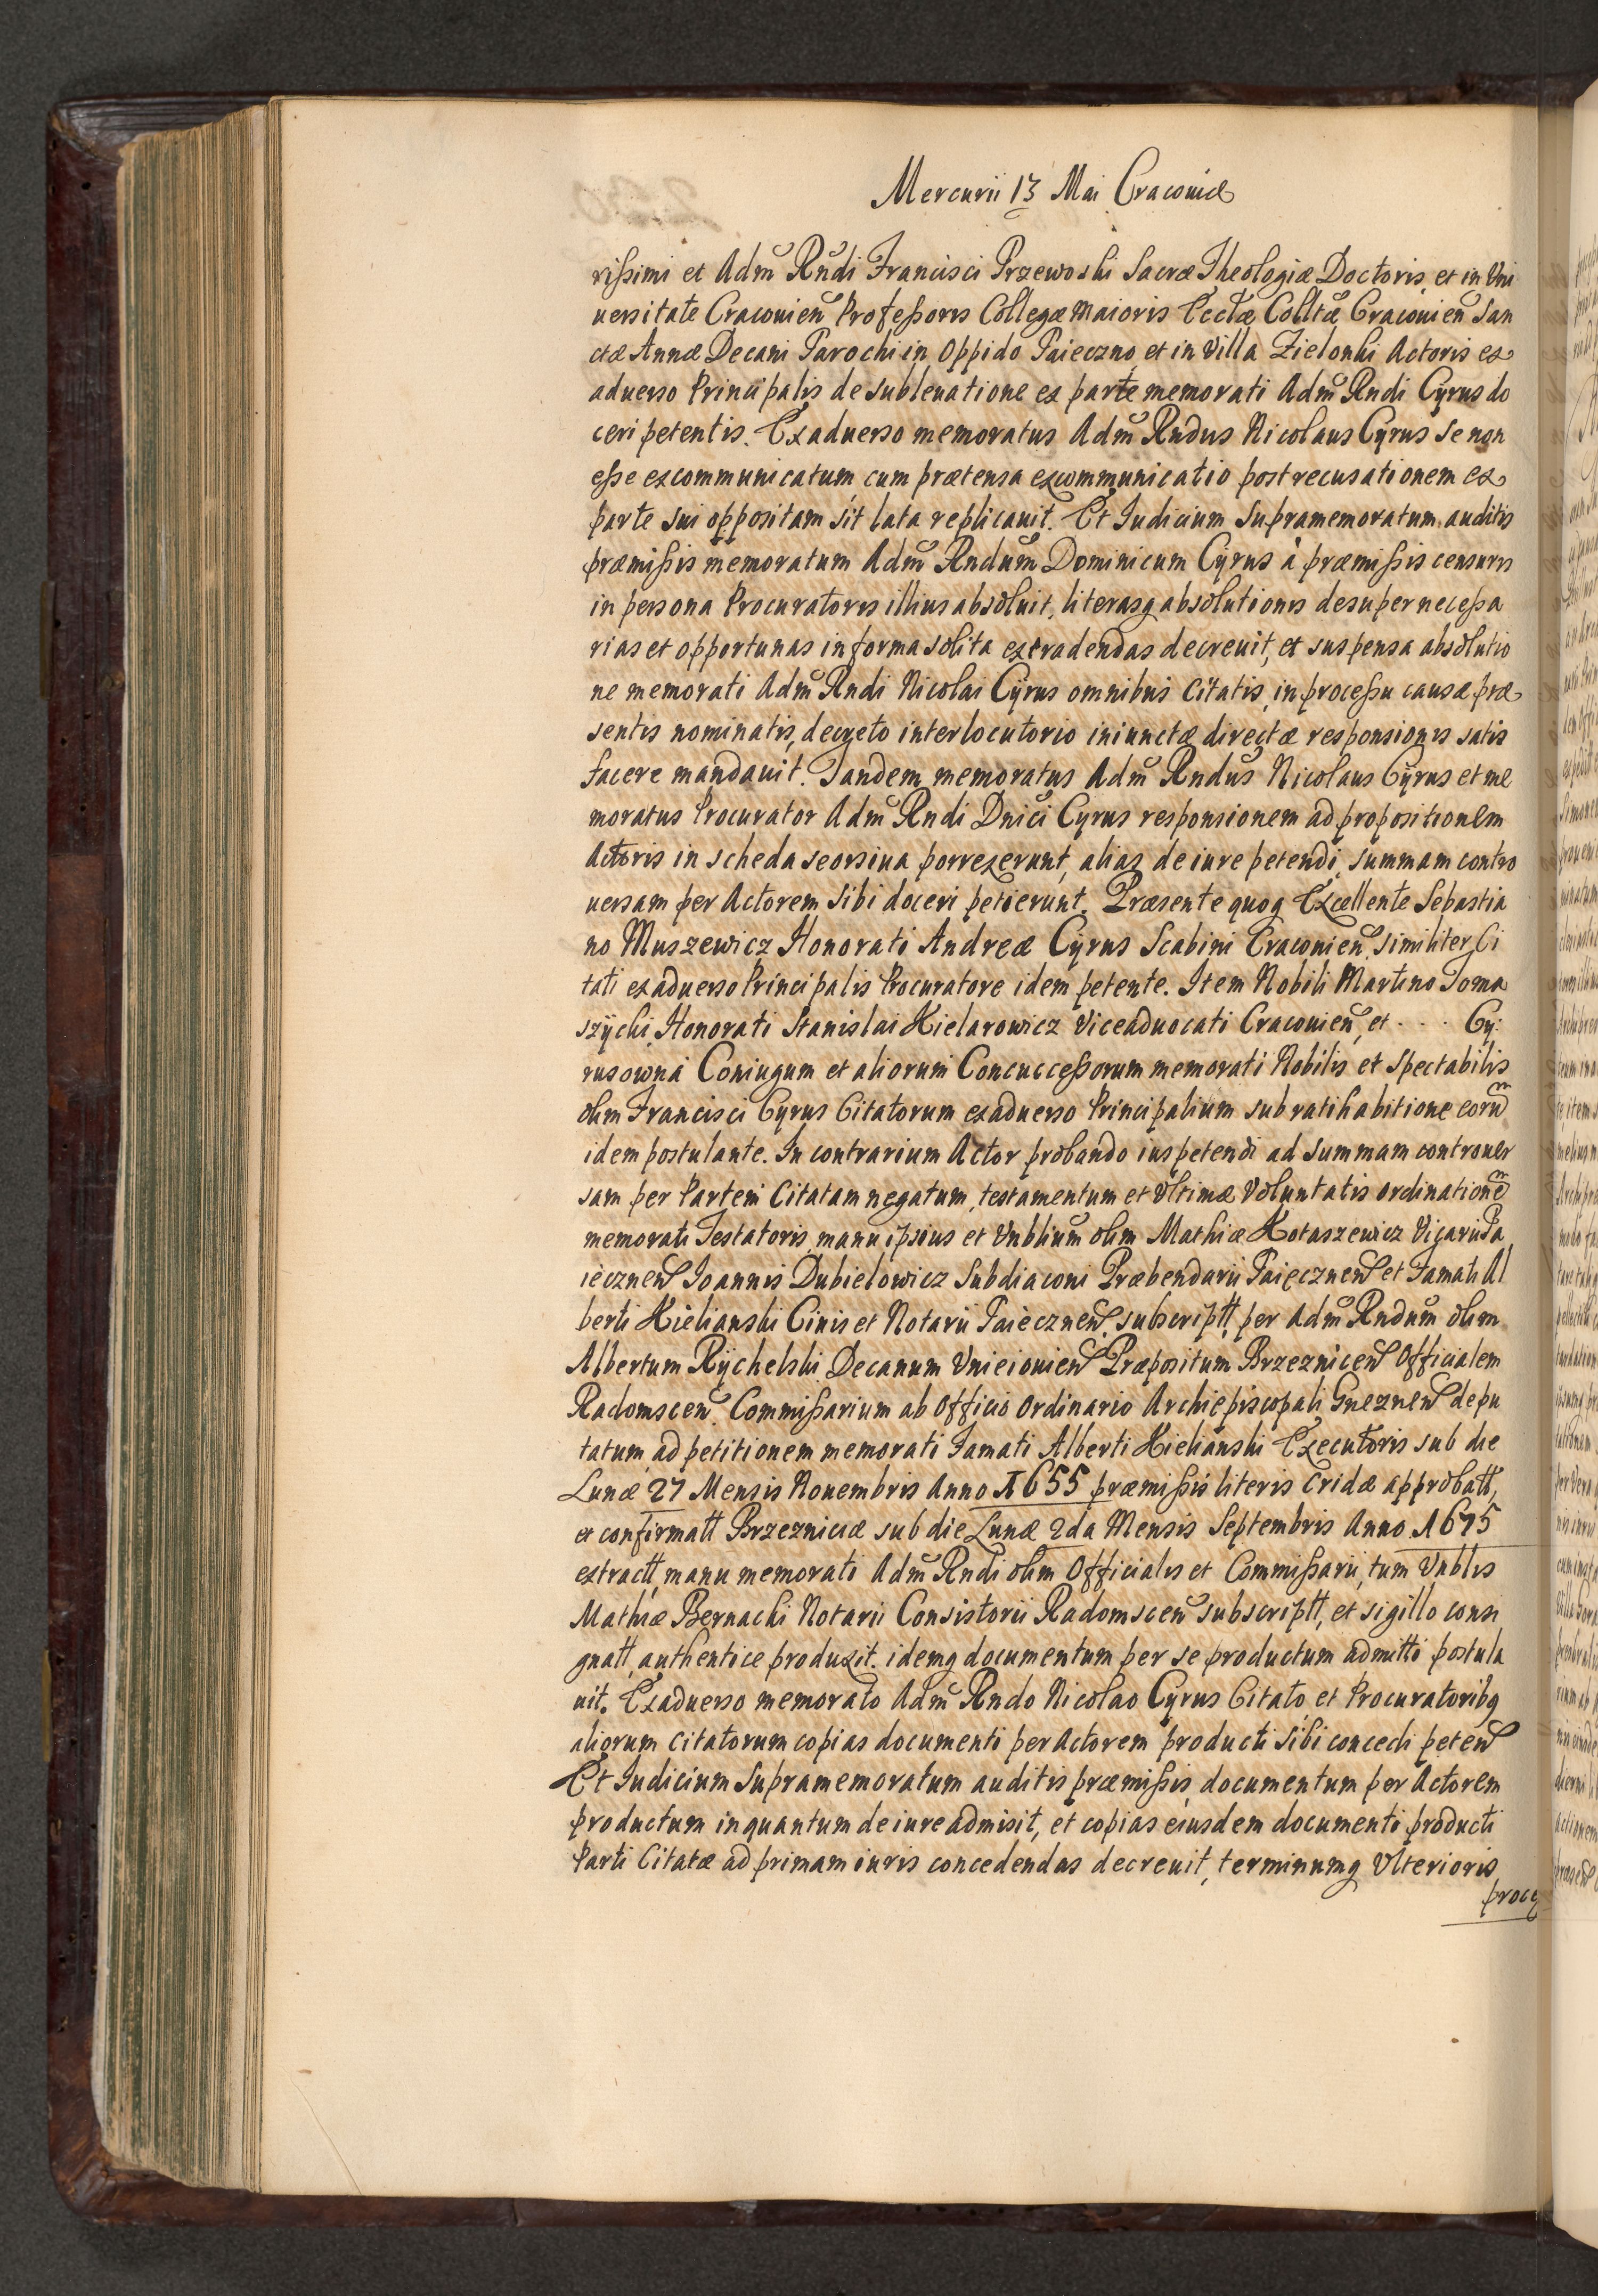 Mercurii 13 Mai Cracoviæ
rißimi et Adm̃ Rñdi Francisci Przewoski Sacræ Theologiæ Doctoris et in Vni
uersitate Cracouieñ Profeßoris Collegæ Maioris Ecctæ Colltæ Cracouieñ San
ctæ Annæ Decani Parochi in Oppido Paieczno et in Villa Zielonki Actoris ex
aduerso Principalis de subleuatione ex parte memorati Adm̃ Rndi Cyrus do
ceri petentis. Exaduerso memoratus Adm̃ Rndus Nicolaus Cyrus se non
eße excommunicatum cum prætensa excommunicatio post recusationem ex
parte sui oppositam sit lata replicauit. Et Iudicium Supramemoratum auditis
præmißis memoratum Adm̃ Rndum Dominicum Cyrus à præmißis censuris
in persona Procuratoris illius absoluit, literasq absolutionis desuper neceßa
rias et opportunas in forma solita extradendas decreuit, et suspensa absolutio
ne memorati Adm̃ Rndi Nicolai Cyrus omnibus Citatis, in proceßu causæ præ
sentis nominatis, decreto interlocutorio iniunctæ directæ responsionis satis
facere mandauit. Tandem memoratus Adm̃ Rndus Nicolaus Cyrus et me
moratus Procurator Adm̃ Rndi Dnici Cyrus responsionem ad propositionem
Actoris in scheda seorsiua porrexerunt, alias de iure petendi summam contro
uersam per Actorem sibi doceri petierunt. Præsente quoq Excellente Sebastia
no Muszewicz Honorati Andreæ Cyrus Scabini Cracouieñ similiter Ci
tati exaduerso Principalis Procuratore idem petente. Item Nobili Martino Toma
szychi Honorati Stanislai Kielarowicz Viceaduocati Cracouieñ, et . . . . Cy:
rusowna Coniugum et aliorum Concucceßorum memorati Nobilis et Spectabilis
olim Francisci Cyrus Citatorum exaduerso Principalium sub ratihabitione eorũdm
idem postulante. In contrarium Actor probando ius petendi ad summam controuer
sam per Partem Citatam negatum, testamentum et Vltimæ Voluntatis ordinationem
memorati Testatoris manu ipsius et Vnblium olim Mathiæ Kotaszewicz Vicarii Pa
iecznen̄ Ioannis Dubielowicz Subdiaconi Præbendarii Paiecznen̄ et Famati Al
berti Kielianski Ciuis et Notarii Paiecznen̄ subscriptt per Adm̃ Rndum olim
Albertum Rychelski Decanum Vnieiouien̄ Præpositum Brzeznicen̄ Officialem
Radomscen̄ Commißarium ab Officio Ordinario Archiepiscopali Gneznen̄ depu
tatum ad petitionem memorati Famati Alberti Kielianski Executoris sub die
Lunæ 27 Mensis Nouembris Anno 1655 præmißis literis Cridæ approbatt,
et confirmatt Brzezniciæ sub die Lunæ 2da Mensis Septembris Anno 1675
extractt, manu memorati Adm̃ Rndi olim Officialis et Commißarii, tum Vnblis
Mathiæ Bernachi Notarii Consistorii Radomscen̄ subscriptt, et sigillo consi
gnatt, authentice produxit. idemq documentum per se productum admitti postula
uit. Exaduerso memorato Adm̃ Rndo Nicolao Cyrus Citato et Procuratoribq
aliorum citatorum copias documenti per Actorem producti sibi concedi peten̄
Et Iudicium Supramemoratum auditis præmißis, documentum per Actorem
productum inquantum de iure admisit, et copias eiusdem documenti producti
Parti Citatæ ad primam iuris concedendas decreuit, terminumq Vlterioris